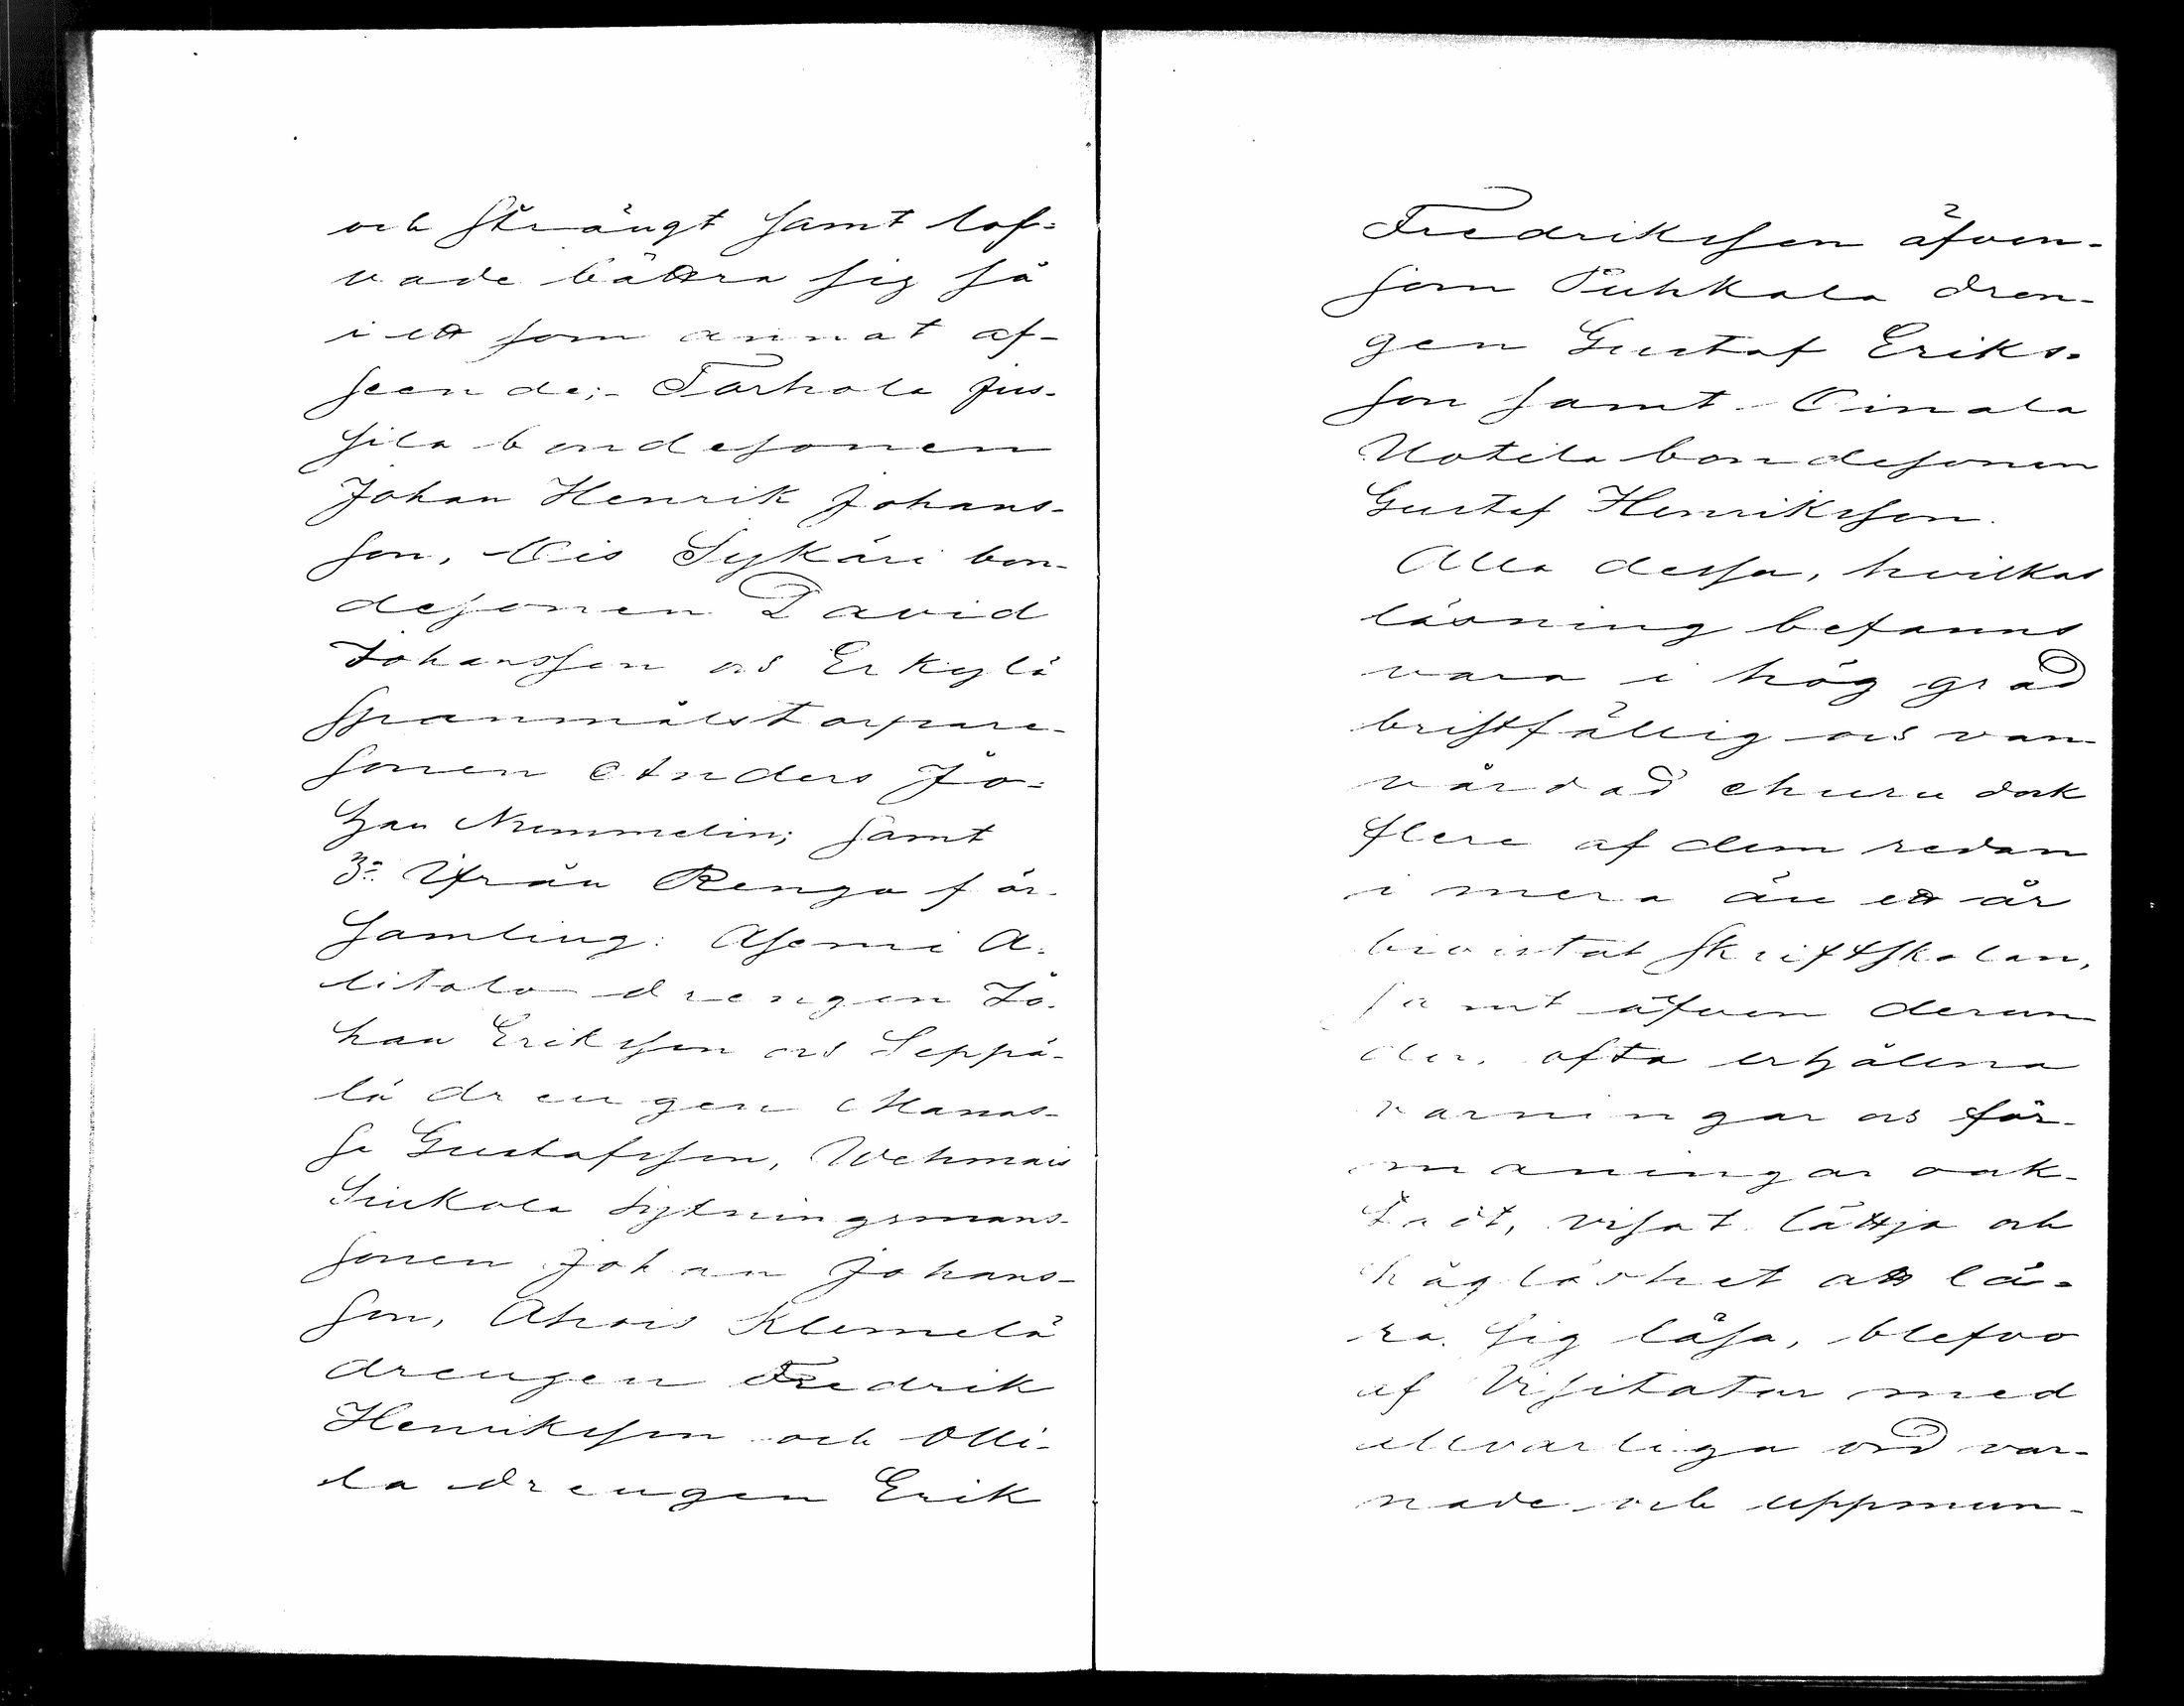 och strängt samt lof-
vade bättra sig så
i ett som annat af-
seende;- Tarhola Jus-
sila bondesonen
Johan Henrik Johans-
son, Ois Sykäri bon-
desonen David
Johansson os Erkylä
spanmålstorpare-
sonen Anders Jo-
han Nummelin; samt
3:o Ifrån Rengo för-
samling: Asemi A-
litalo drengen Jo-
han Eriksson os Seppä-
lä drengen Manas-
se Gustafsson, Wehmais
Siukola sytningsmans-
sonen Johan Johans-
son, Ahois Klemelä
drengen Fredrik
Henriksson och Olli-
la drengen Erik
Fredriksson äfven-
som Puhkala dren-
gen Gustaf Eriks-
son samt Oinala
Uotila bondesonen
Gustaf Henriksson.
Alla dessa, hvilkas
läsning befanns
vara i hög grad
bristfällig os van-
vårdad ehuru dock
flere af dem redan
i mera än ett år
bivistat skriftskolan,
samt äfven derun-
der, ofta erhållna
varningar os för-
maningar oak-
tadt, visat lättja och
håglöshet att lä-
ra sig läsa, blefvo
af Visitator med
allvarliga ord var-
nade och uppmun-